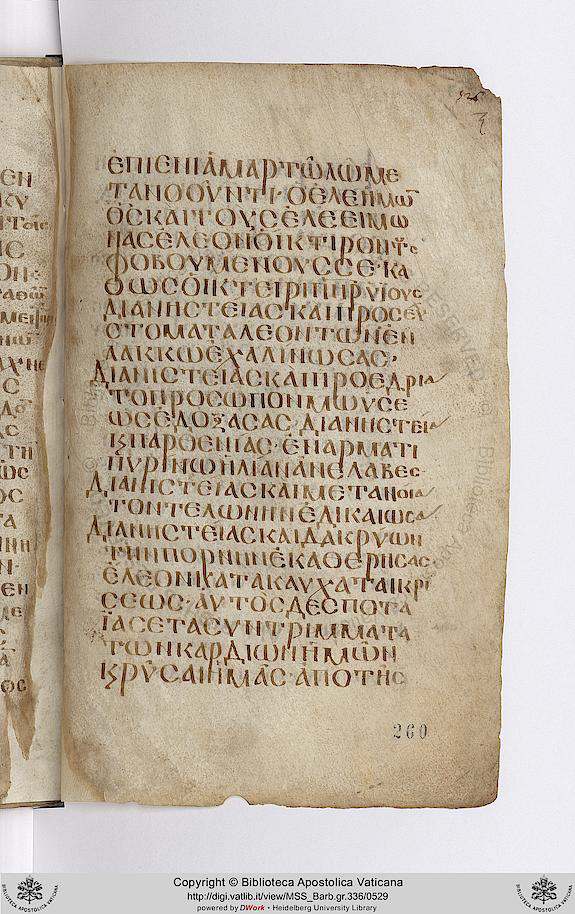 ἐπὶ ἐνὶ ἁμαρτωλῶ με
τανοοῦντι· ὁ ἐλεήμω̅
ὃς καὶ τοὺς ἐλέει μω
νας ἐλεον ὀικτίρον τ
φοβουμένους σε· κα
θως ὀικτείρι πηρ υἱους
Διανιστείας και προσευ
στοματα λεοντων εν
λακκω ἐχαλινωσας·
Διανιστείας και προεδρια
το προσωπον μωυσε
ως ἐδοξασας· Διανιστεια
κ παρθενιας· ἐν αρματι
πυρίνω ηλιαν ανελαβες
Διανιστείας και μετανοια
τον τελωνην ἐδικαιωσα
Διανιστείας και δακρυων
την πορνην ἐκαθερησας
ἐλεον κατακαυχαται κρι
σεως· ἀυτος δεσποτα
ϊασε τα συντριμματα
των καρδιων ημων
κ ρυσαι ημας ἀπο της
260
Copyright © Biblioteca Apostolica Vaticana
http://digi.vatlib.it/view/MSS_Barb.gr.336/0529
powered by DWork • Heidelberg University Library